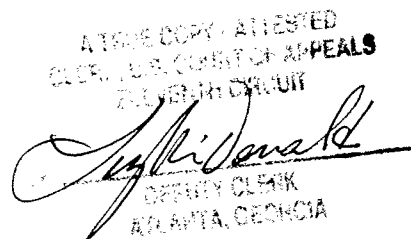 A TRUE COPY - ATTESTED
CLERK U.S. COURT OF APPEALS
ELEVENTH CIRCUIT
DEPUTY CLERK
ATLANTA, GEORGIA